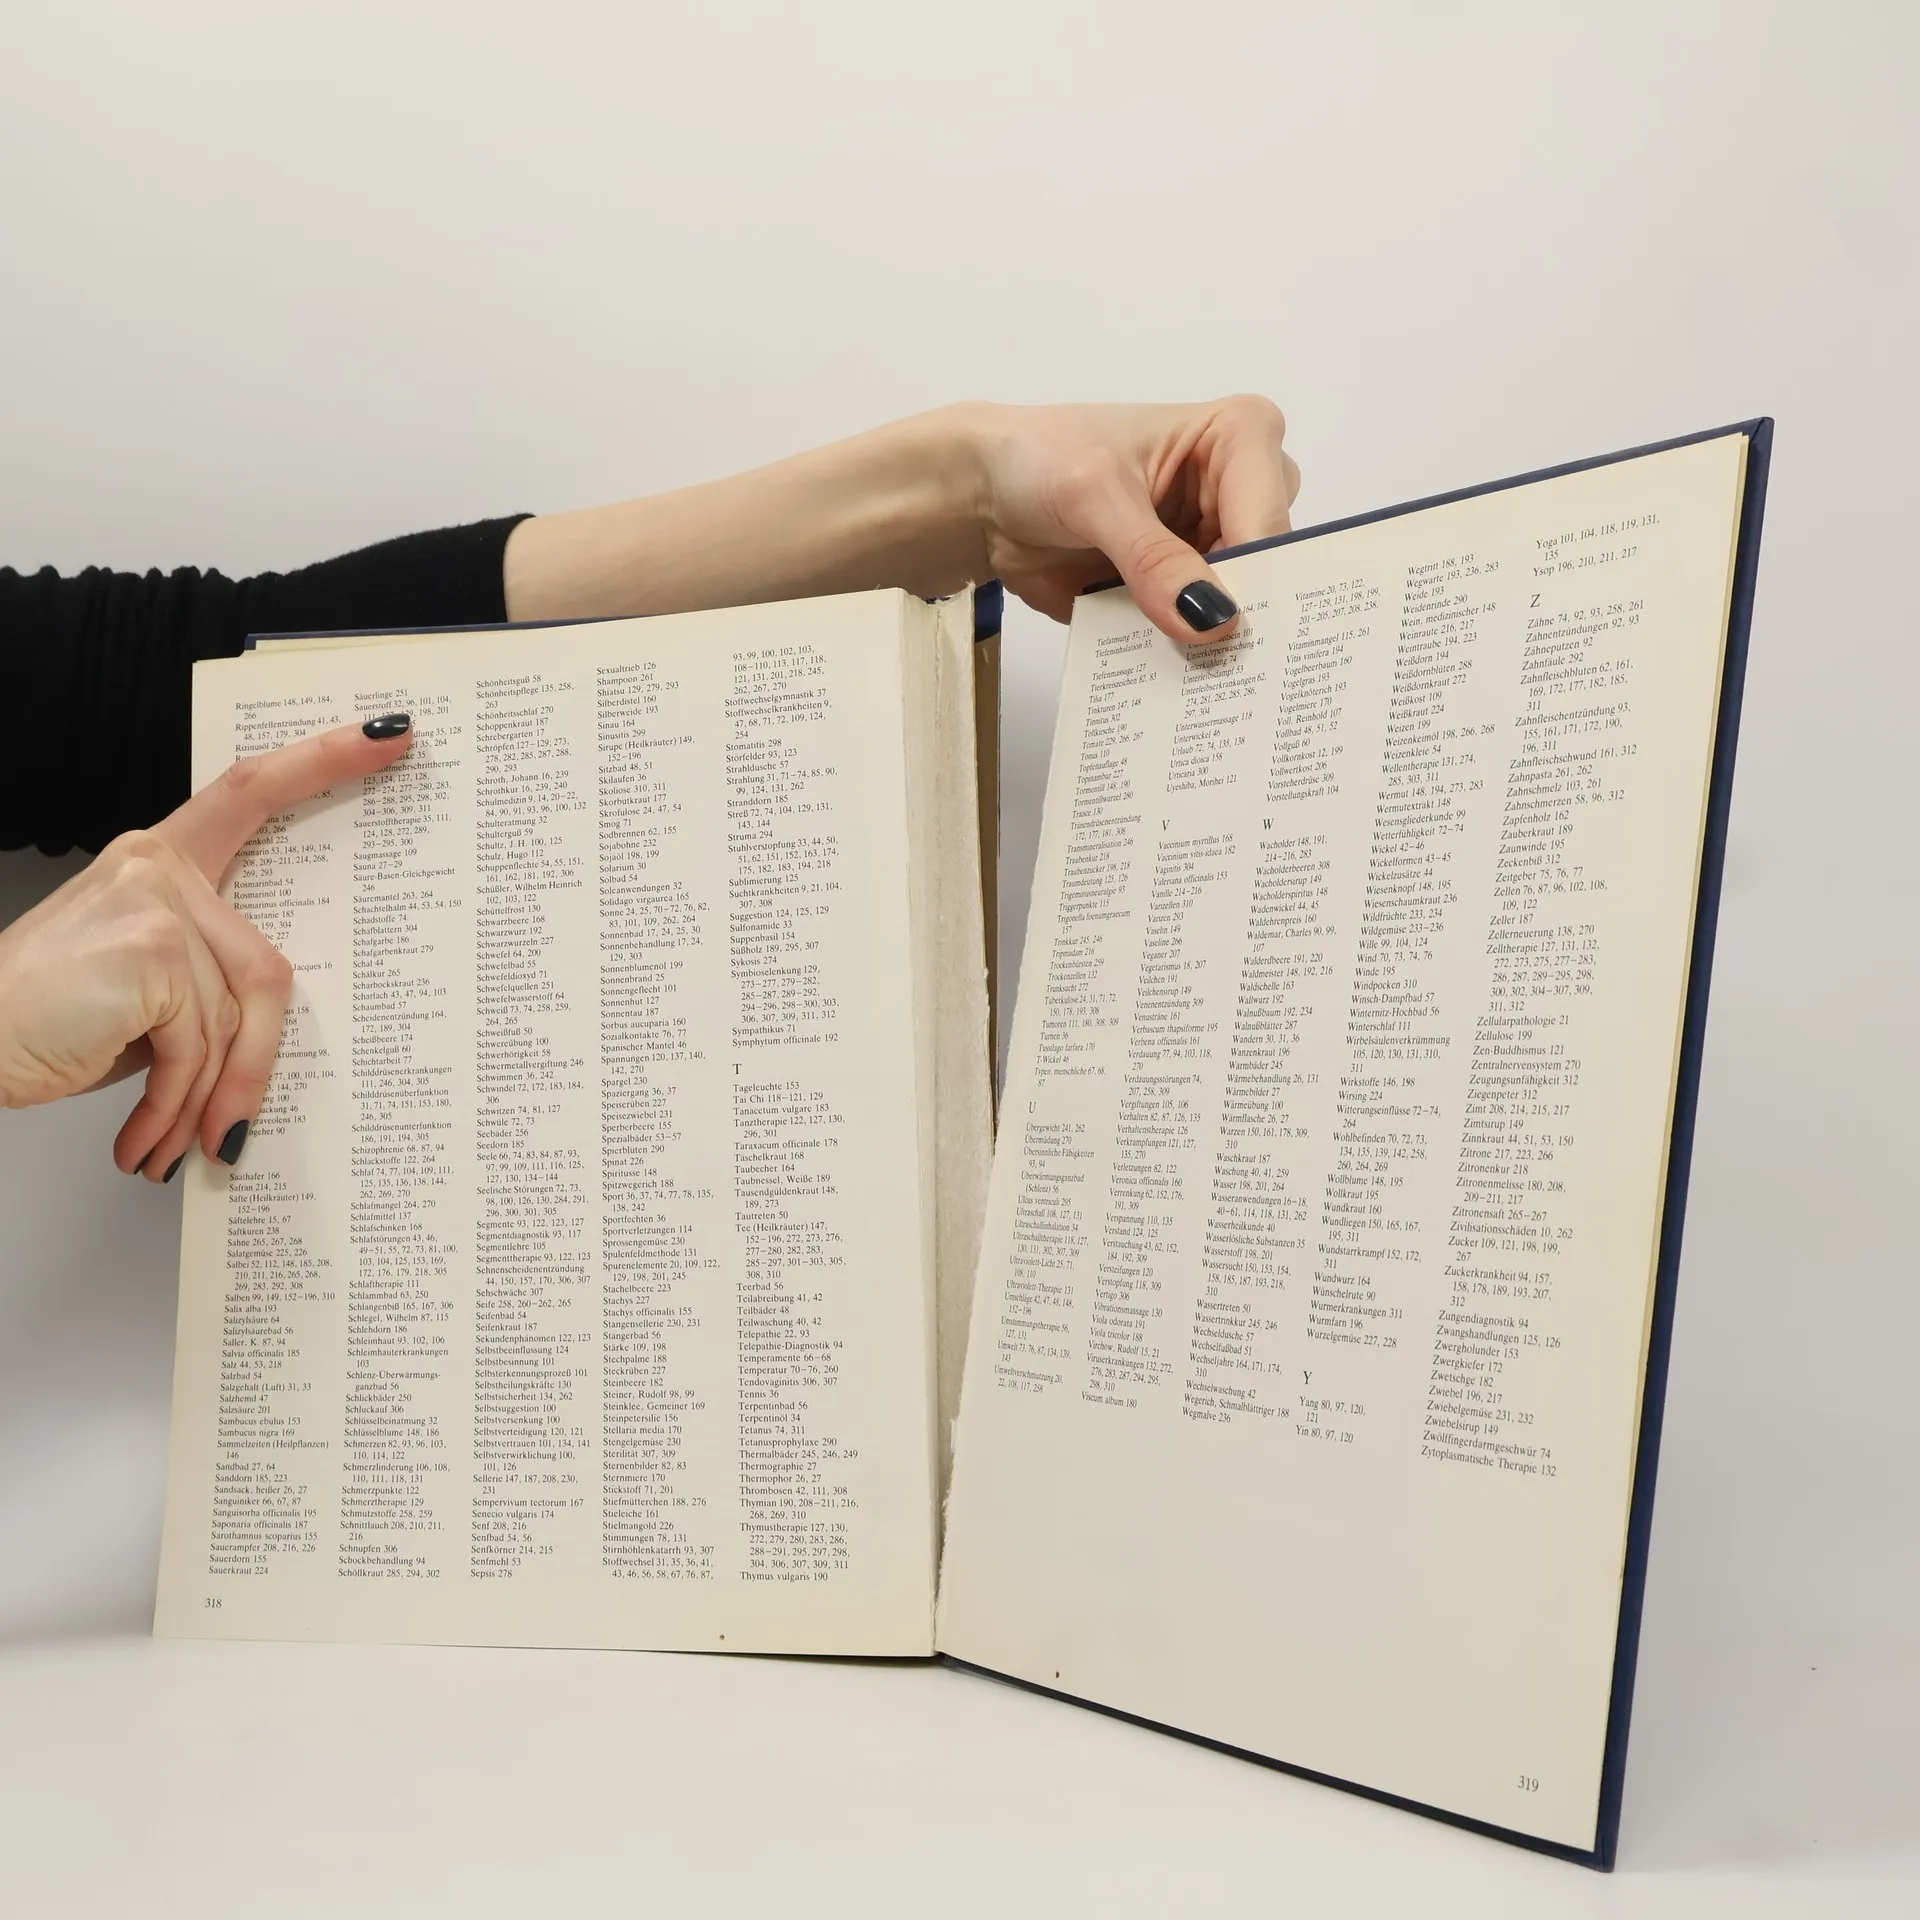 Ringelblume 148, 149, 184,
266
Rippenfellentzündung 41, 43,
48, 157, 179, 304
Rizinusöl 268
167
103, 266
225
Rosmarin 53, 148, 149, 184,
208, 209–211, 214, 268,
269, 293
Rosmarinbad 54
Rosmarinöl 100
Rosmarinus officinalis 184
185
159, 304
227
Jacques 16
158
168
37
77, 100, 101, 104,
144, 270
100
46
183
90
Saathafer 166
Safran 214, 215
Säfte (Heilkräuter) 149,
152–196
Säftelehre 15, 67
Saftkuren 238
Sahne 265, 267, 268
Salatgemüse 225, 226
Salbei 52, 112, 148, 185, 208,
210, 211, 216, 265, 268,
269, 283, 292, 308
Salben 99, 149, 152–196, 310
Salix alba 193
Salizylsäure 64
Salizylsäurebad 56
Saller, K. 87, 94
Salvia officinalis 185
Salz 44, 53, 218
Salzbad 54
Salzgehalt (Luft) 31, 33
Salzhemd 47
Salzsäure 201
Sambucus ebulus 153
Sambucus nigra 169
Sammelzeiten (Heilpflanzen)
146
Sandbad 27, 64
Sanddorn 185, 223
Sandsack, heißer 26, 27
Sanguiniker 66, 67, 87
Sanguisorba officinalis 195
Saponaria officinalis 187
Sarothamnus scoparius 155
Sauerampfer 208, 216, 226
Sauerdorn 155
Sauerkraut 224
318
Säuerlinge 251
Sauerstoff 32, 96, 101, 104,
198, 201
35, 128
35, 264
35
123, 124, 127, 128,
272–274, 277–280, 283,
286–288, 295, 298, 302,
304–306, 309, 311
Sauerstofftherapie 35, 111,
124, 128, 272, 289,
293–295, 300
Saugmassage 109
Sauna 27–29
Säure-Basen-Gleichgewicht
246
Säuremantel 263, 264
Schachtelhalm 44, 53, 54, 150
Schadstoffe 74
Schafblattern 304
Schafgarbe 186
Schafgarbenkraut 279
Schal 44
Schälkur 265
Scharbockskraut 236
Scharlach 43, 47, 94, 103
Schaumbad 57
Scheidenentzündung 164,
172, 189, 304
Scheißbeere 174
Schenkelguß 60
Schichtarbeit 77
Schilddrüsenerkrankungen
111, 246, 304, 305
Schilddrüsenüberfunktion
31, 71, 74, 151, 153, 180,
246, 305
Schilddrüsenunterfunktion
186, 191, 194, 305
Schizophrenie 68, 87, 94
Schlackstoffe 122, 264
Schlaf 74, 77, 104, 109, 111,
125, 135, 136, 138, 144,
262, 269, 270
Schlafmangel 264, 270
Schlafmittel 137
Schlafschinken 168
Schlafstörungen 43, 46,
49–51, 55, 72, 73, 81, 100,
103, 104, 125, 153, 169,
172, 176, 179, 218, 305
Schlaftherapie 111
Schlammbad 63, 250
Schlangenbiß 165, 167, 306
Schlegel, Wilhelm 87, 115
Schlehdorn 186
Schleimhaut 93, 102, 106
Schleimhauterkrankungen
103
Schlenz-Überwärmungs-
ganzbad 56
Schlickbäder 250
Schluckauf 306
Schlüsselbeinatmung 32
Schlüsselblume 148, 186
Schmerzen 82, 93, 96, 103,
110, 114, 122
Schmerzlinderung 106, 108,
110, 111, 118, 131
Schmerzpunkte 122
Schmerztherapie 129
Schmutzstoffe 258, 259
Schnittlauch 208, 210, 211,
216
Schnupfen 306
Schockbehandlung 94
Schöllkraut 285, 294, 302
Schönheitsguß 58
Schönheitspflege 135, 258,
263
Schönheitsschlaf 270
Schoppenkraut 187
Schrebergarten 17
Schröpfen 127–129, 273,
278, 282, 285, 287, 288,
290, 293
Schroth, Johann 16, 239
Schrothkur 16, 239, 240
Schulmedizin 9, 14, 20–22,
84, 90, 91, 93, 96, 100, 132
Schulteratmung 32
Schulterguß 59
Schultz, J. H. 100, 125
Schulz, Hugo 112
Schuppenflechte 54, 55, 151,
161, 162, 181, 192, 306
Schüßler, Wilhelm Heinrich
102, 103, 122
Schüttelfrost 130
Schwarzbeere 168
Schwarzwurz 192
Schwarzwurzeln 227
Schwefel 64, 200
Schwefelbad 55
Schwefeldioxyd 71
Schwefelquellen 251
Schwefelwasserstoff 64
Schweiß 73, 74, 258, 259,
264, 265
Schweißfuß 50
Schwereübung 100
Schwerhörigkeit 58
Schwermetallvergiftung 246
Schwimmen 36, 242
Schwindel 72, 172, 183, 184,
306
Schwitzen 74, 81, 127
Schwüle 72, 73
Seebäder 256
Seedorn 185
Seele 66, 74, 83, 84, 87, 93,
97, 99, 109, 111, 116, 125,
127, 130, 134–144
Seelische Störungen 72, 73,
98, 100, 126, 130, 284, 291,
296, 300, 301, 305
Segmente 93, 122, 123, 127
Segmentdiagnostik 93, 117
Segmentlehre 105
Segmenttherapie 93, 122, 123
Sehnenscheidenentzündung
44, 150, 157, 170, 306, 307
Sehschwäche 307
Seife 258, 260–262, 265
Seifenbad 54
Seifenkraut 187
Sekundenphänomen 122, 123
Selbstbeeinflussung 124
Selbstbesinnung 101
Selbsterkennungsprozeß 101
Selbstheilungskräfte 130
Selbstsicherheit 134, 262
Selbstsuggestion 100
Selbstversenkung 100
Selbstverteidigung 120, 121
Selbstvertrauen 101, 134, 141
Selbstverwirklichung 100,
101, 126
Sellerie 147, 187, 208, 230,
231
Sempervivum tectorum 167
Senecio vulgaris 174
Senf 208, 216
Senfbad 54, 56
Senfkörner 214, 215
Senfmehl 53
Sepsis 278
Sexualtrieb 126
Shampoon 261
Shiatsu 129, 279, 293
Silberdistel 160
Silberweide 193
Sinau 164
Sinusitis 299
Sirupe (Heilkräuter) 149,
152–196
Sitzbad 48, 51
Skilaufen 36
Skoliose 310, 311
Skorbutkraut 177
Skrofulose 24, 47, 54
Smog 71
Sodbrennen 62, 155
Sojabohne 232
Sojaöl 198, 199
Solarium 30
Solbad 54
Soleanwendungen 32
Solidago virgaurea 165
Sonne 24, 25, 70–72, 76, 82,
83, 101, 109, 262, 264
Sonnenbad 17, 24, 25, 30
Sonnenbehandlung 17, 24,
129, 303
Sonnenblumenöl 199
Sonnenbrand 25
Sonnengeflecht 101
Sonnenhut 127
Sonnentau 187
Sorbus aucuparia 160
Sozialkontakte 76, 77
Spanischer Mantel 46
Spannungen 120, 137, 140,
142, 270
Spargel 230
Spaziergang 36, 37
Speiserüben 227
Speisezwiebel 231
Sperberbeere 155
Spezialbäder 53–57
Spierblüten 290
Spinat 226
Spiritusse 148
Spitzwegerich 188
Sport 36, 37, 74, 77, 78, 135,
138, 242
Sportfechten 36
Sportverletzungen 114
Sprossengemüse 230
Spulenfeldmethode 131
Spurenelemente 20, 109, 122,
129, 198, 201, 245
Stachelbeere 223
Stachys 227
Stachys officinalis 155
Stangensellerie 230, 231
Stangerbad 56
Stärke 109, 198
Stechpalme 188
Steckrüben 227
Steinbeere 182
Steiner, Rudolf 98, 99
Steinklee, Gemeiner 169
Steinpetersilie 156
Stellaria media 170
Stengelgemüse 230
Sterilität 307, 309
Sternenbilder 82, 83
Sternmiere 170
Stickstoff 71, 201
Stiefmütterchen 188, 276
Stieleiche 161
Stielmangold 226
Stimmungen 78, 131
Stirnhöhlenkatarrh 93, 307
Stoffwechsel 31, 35, 36, 41,
43, 46, 56, 58, 67, 76, 87,
93, 99, 100, 102, 103,
108–110, 113, 117, 118,
121, 131, 201, 218, 245,
262, 267, 270
Stoffwechselgymnastik 37
Stoffwechselkrankheiten 9,
47, 68, 71, 72, 109, 124,
254
Stomatitis 298
Störfelder 93, 123
Strahldusche 57
Strahlung 31, 71–74, 85, 90,
99, 124, 131, 262
Stranddorn 185
Streß 72, 74, 104, 129, 131,
143, 144
Struma 294
Stuhlverstopfung 33, 44, 50,
51, 62, 151, 152, 163, 174,
175, 182, 183, 194, 218
Sublimierung 125
Suchtkrankheiten 9, 21, 104,
307, 308
Suggestion 124, 125, 129
Sulfonamide 33
Suppenbasil 154
Süßholz 189, 295, 307
Sykosis 274
Symbioselenkung 129,
273–277, 279–282,
285–287, 289–292,
294–296, 298–300, 303,
306, 307, 309, 311, 312
Sympathikus 71
Symphytum officinale 192
T
Tageleuchte 153
Tai Chi 118–121, 129
Tanacetum vulgare 183
Tanztherapie 122, 127, 130,
296, 301
Taraxacum officinale 178
Täschelkraut 168
Taubecher 164
Taubnessel, Weiße 189
Tausendgüldenkraut 148,
189, 273
Tautreten 50
Tee (Heilkräuter) 147,
152–196, 272, 273, 276,
277–280, 282, 283,
285–297, 301–303, 305,
308, 310
Teerbad 56
Teilabreibung 41, 42
Teilbäder 48
Teilwaschung 40, 42
Telepathie 22, 93
Telepathie-Diagnostik 94
Temperamente 66–68
Temperatur 70–76, 260
Tendovaginitis 306, 307
Tennis 36
Terpentinbad 56
Terpentinöl 34
Tetanus 74, 311
Tetanusprophylaxe 290
Thermalbäder 245, 246, 249
Thermographie 27
Thermophor 26, 27
Thrombosen 42, 111, 308
Thymian 190, 208–211, 216,
268, 269, 310
Thymustherapie 127, 130,
272, 279, 280, 283, 286,
288–291, 295, 297, 298,
304, 306, 307, 309, 311
Thymus vulgaris 190
Tiefatmung 37, 135
Tiefeninhalation 33,
34
Tiefenmassage 127
Tierkreiszeichen 82, 83
Tilia 177
Tinkturen 147, 148
Tinnitus 302
Tollkirsche 190
Tomate 229, 266, 267
Tonus 110
Topfenauflage 48
Topinambur 227
Tormentill 148, 190
Tormentillwurzel 280
Trance 130
Tränendrüsenentzündung
172, 177, 181, 308
Transmineralisation 246
Traubenkur 218
Traubenzucker 198, 218
Traumdeutung 125, 126
Trigeminusneuralgie 93
Triggerpunkte 115
Trigonella foenumgraecum
157
Trinkkur 245, 246
Tripmadam 216
Trockenbürsten 259
Trockenzellen 132
Trunksucht 272
Tuberkulose 24, 31, 71, 72,
150, 178, 193, 308
Tumoren 111, 180, 308, 309
Turnen 36
Tussilago farfara 170
T-Wickel 46
Typen, menschliche 67, 68,
87
U
Übergewicht 241, 262
Übermüdung 270
Übersinnliche Fähigkeiten
93, 94
Überwärmungsganzbad
(Schlenz) 56
Ulcus ventriculi 295
Ultraschall 108, 127, 131
Ultraschallinhalation 34
Ultraschalltherapie 118, 127,
130, 131, 302, 307, 309
Ultraviolett-Licht 25, 71,
108, 110
Ultraviolett-Therapie 131
Umschläge 42, 47, 48, 148,
152–196
Umstimmungstherapie 56,
127, 131
Umwelt 73, 76, 87, 134, 139,
143
Umweltverschmutzung 20,
22, 108, 117, 258
164, 184,
101
Unterkörperwaschung 41
Unterkühlung 74
Unterleibsdampf 53
Unterleibserkrankungen 62,
274, 281, 282, 285, 286,
297, 304
Unterwassermassage 118
Unterwickel 46
Urlaub 72, 74, 135, 138
Urtica dioica 158
Urticaria 300
Uyeshiba, Morihei 121
V
Vaccinium myrtillus 168
Vaccinium vitis-idaea 182
Vaginitis 304
Valeriana officinalis 153
Vanille 214–216
Varizellen 310
Varizen 293
Vaselin 149
Vaseline 266
Veganer 207
Vegetarismus 18, 207
Veilchen 191
Veilchensirup 149
Venenentzündung 309
Venusträne 161
Verbascum thapsiforme 195
Verbena officinalis 161
Verdauung 77, 94, 103, 118,
270
Verdauungsstörungen 74,
207, 258, 309
Vergiftungen 105, 106
Verhalten 82, 87, 126, 135
Verhaltenstherapie 126
Verkrampfungen 121, 127,
135, 270
Verletzungen 82, 122
Veronica officinalis 160
Verrenkung 62, 152, 176,
191, 309
Verspannung 110, 135
Verstand 124, 125
Verstauchung 43, 62, 152,
184, 192, 309
Versteifungen 120
Verstopfung 118, 309
Vertigo 306
Vibrationsmassage 130
Viola odorata 191
Viola tricolor 188
Virchow, Rudolf 15, 21
Viruserkrankungen 132, 272,
276, 283, 287, 294, 295,
298, 310
Viscum album 180
Vitamine 20, 73, 122,
127–129, 131, 198, 199,
201–205, 207, 208, 238,
262
Vitaminmangel 115, 261
Vitis vinifera 194
Vogelbeerbaum 160
Vogelgras 193
Vogelknöterich 193
Vogelmiere 170
Voll, Reinhold 107
Vollbad 48, 51, 52
Vollguß 60
Vollkornkost 12, 199
Vollwertkost 206
Vorsteherdrüse 309
Vorstellungskraft 104
W
Wacholder 148, 191,
214–216, 283
Wacholderbeeren 308
Wacholdersirup 149
Wacholderspiritus 148
Wadenwickel 44, 45
Waldehrenpreis 160
Waldemar, Charles 90, 99,
107
Walderdbeere 191, 220
Waldmeister 148, 192, 216
Waldschelle 163
Wallwurz 192
Walnußbaum 192, 234
Walnußblätter 287
Wandern 30, 31, 36
Wanzenkraut 196
Warmbäder 245
Wärmebehandlung 26, 131
Wärmebilder 27
Wärmeübung 100
Wärmflasche 26, 27
Warzen 150, 161, 178, 309,
310
Waschkraut 187
Waschung 40, 41, 259
Wasser 198, 201, 264
Wasseranwendungen 16–18,
40–61, 114, 118, 131, 262
Wasserheilkunde 40
Wasserlösliche Substanzen 35
Wasserstoff 198, 201
Wassersucht 150, 153, 154,
158, 185, 187, 193, 218,
310
Wassertreten 50
Wassertrinkkur 245, 246
Wechseldusche 57
Wechselfußbad 51
Wechseljahre 164, 171, 174,
310
Wechselwaschung 42
Wegerich, Schmalblättriger 188
Wegmalve 236
Wegtritt 188, 193
Wegwarte 193, 236, 283
Weide 193
Weidenrinde 290
Wein, medizinischer 148
Weinraute 216, 217
Weintraube 194, 223
Weißdorn 194
Weißdornblüten 288
Weißdornkraut 272
Weißkost 109
Weißkraut 224
Weizen 199
Weizenkeimöl 198, 266, 268
Weizenkleie 54
Wellentherapie 131, 274,
285, 303, 311
Wermut 148, 194, 273, 283
Wermutextrakt 148
Wesensgliederkunde 99
Wetterfühligkeit 72–74
Wickel 42–46
Wickelformen 43–45
Wickelzusätze 44
Wiesenknopf 148, 195
Wiesenschaumkraut 236
Wildfrüchte 233, 234
Wildgemüse 233–236
Wille 99, 104, 124
Wind 70, 73, 74, 76
Winde 195
Windpocken 310
Winsch-Dampfbad 57
Winternitz-Hochbad 56
Winterschlaf 111
Wirbelsäulenverkrümmung
105, 120, 130, 131, 310,
311
Wirkstoffe 146, 198
Wirsing 224
Witterungseinflüsse 72–74,
264
Wohlbefinden 70, 72, 73,
134, 135, 139, 142, 258,
260, 264, 269
Wollblume 148, 195
Wollkraut 195
Wundkraut 160
Wundliegen 150, 165, 167,
195, 311
Wundstarrkrampf 152, 172,
311
Wundwurz 164
Wünschelrute 90
Wurmerkrankungen 311
Wurmfarn 196
Wurzelgemüse 227, 228
Y
Yang 80, 97, 120,
121
Yin 80, 97, 120
Yoga 101, 104, 118, 119, 131,
135
Ysop 196, 210, 211, 217
Z
Zähne 74, 92, 93, 258, 261
Zahnentzündungen 92, 93
Zähneputzen 92
Zahnfäule 292
Zahnfleischbluten 62, 161,
169, 172, 177, 182, 185,
311
Zahnfleischentzündung 93,
155, 161, 171, 172, 190,
196, 311
Zahnfleischschwund 161, 312
Zahnpasta 261, 262
Zahnschmelz 103, 261
Zahnschmerzen 58, 96, 312
Zapfenholz 162
Zauberkraut 189
Zaunwinde 195
Zeckenbiß 312
Zeitgeber 75, 76, 77
Zellen 76, 87, 96, 102, 108,
109, 122
Zeller 187
Zellerneuerung 138, 270
Zelltherapie 127, 131, 132,
272, 273, 275, 277–283,
286, 287, 289–295, 298,
300, 302, 304–307, 309,
311, 312
Zellularpathologie 21
Zellulose 199
Zen-Buddhismus 121
Zentralnervensystem 270
Zeugungsunfähigkeit 312
Ziegenpeter 312
Zimt 208, 214, 215, 217
Zimtsirup 149
Zinnkraut 44, 51, 53, 150
Zitrone 217, 223, 266
Zitronenkur 218
Zitronenmelisse 180, 208,
209–211, 217
Zitronensaft 265–267
Zivilisationsschäden 10, 262
Zucker 109, 121, 198, 199,
267
Zuckerkrankheit 94, 157,
158, 178, 189, 193, 207,
312
Zungendiagnostik 94
Zwangshandlungen 125, 126
Zwergholunder 153
Zwergkiefer 172
Zwetschge 182
Zwiebel 196, 217
Zwiebelgemüse 231, 232
Zwiebelsirup 149
Zwölffingerdarmgeschwür 74
Zytoplasmatische Therapie 132
319